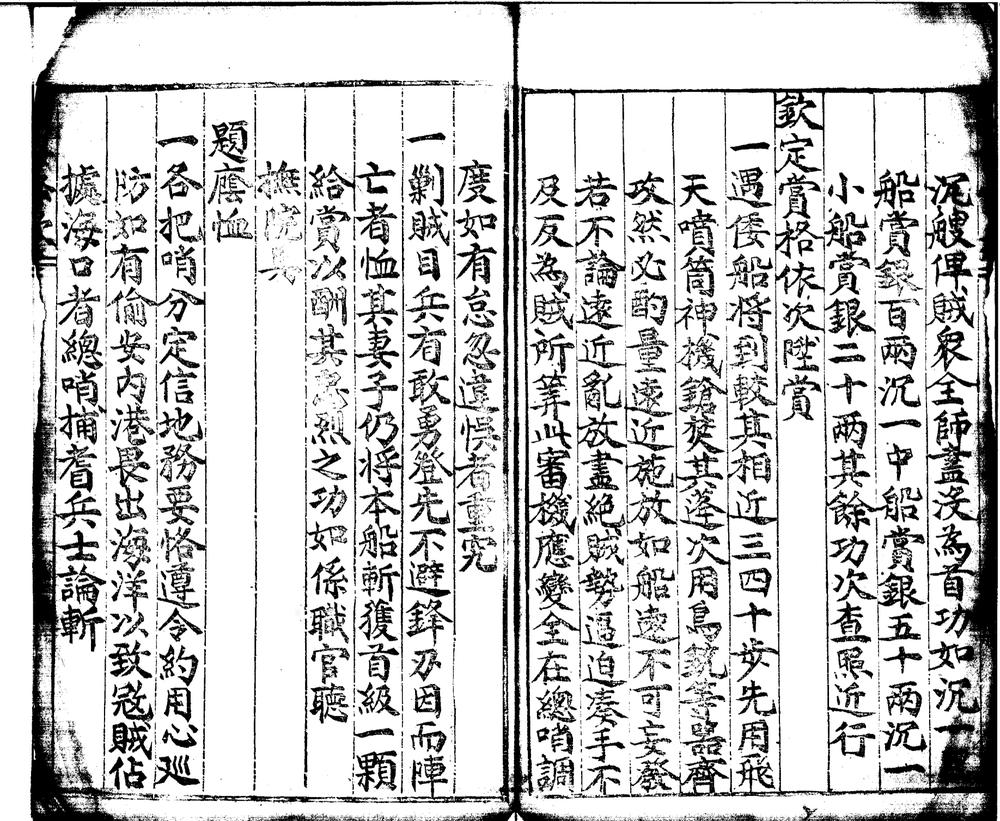 泥艘俾賊衆全師蓋沒為首功如沉一
船賞銀百兩沉一中船賞銀五十兩沉一
小船賞銀二十兩其餘功次查照近行
欽定賞格依次陞賞
一遇倭船將到較其相近三四十步先用飛
天噴筒神機鎗焚其蓬次用鳥銃等器齊
攻然必酌量遠近施放如船遠不可妄發
若不論遠近亂放盡絕賊勢逼迫湊手不
及反為賊所筭此審機應變全在總哨調
度如有怠忽違悞者重究
一剿賊目兵有敢勇登先不避鋒刃因而陣
亡者恤其妻子仍將本船斬獲首級一顆
給賞以酬其忠烈之功如係職官聽
撫院具
題廕恤
一各把哨分定信地務要恪遵令約用心廵
防如有偷安內港畏出海洋以致冦賊佔
據海口者總哨捕耆兵士論斬